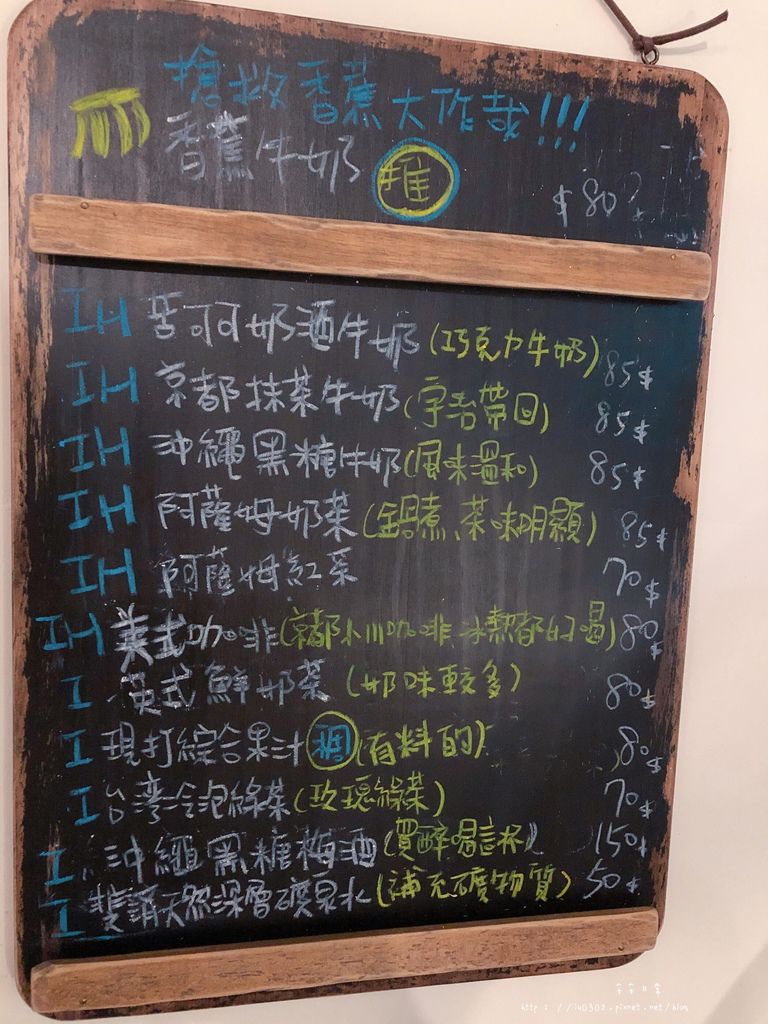 搶救香蕉大作哉!!!
香蕉牛奶 推 $80
IH 苦可可奶酒牛奶(巧克力牛奶) 85$
IH 京都抹茶牛奶(宇治帶回) 85$
IH 沖繩黑糖牛奶(風味溫和) 85$
IH 阿薩姆奶茶(鍋煮、茶味明顯) 85$
IH 阿薩姆紅茶 70$
IH 美式咖啡(京都小川咖啡 冰熱都的喝) 80$
I 英式鮮奶茶(奶味較多) 80$
I 現打綜合果汁 稠 (有料的) 80$
I 台灣冷泡綠茶(玫瑰綠茶) 70$
I 沖繩黑糖梅酒(買醉喝這杯) 150$
I 斐濟天然深層礦泉水(補充礦物質) 50$
http://iu0302.pixnet.net/blog